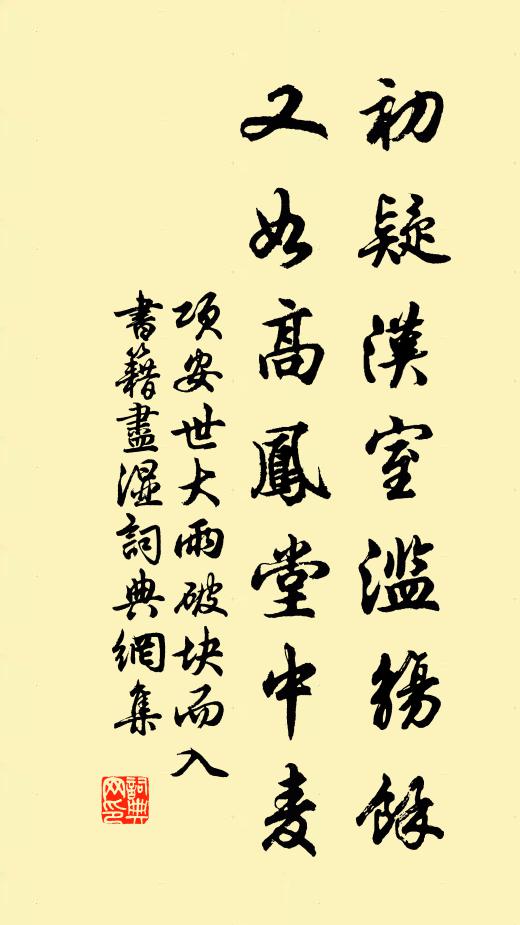 初疑漢室濫觴餘
又如高鳳堂中麦
項安世大雨破块而入
書籍盡濕詞典網集
詞典网印